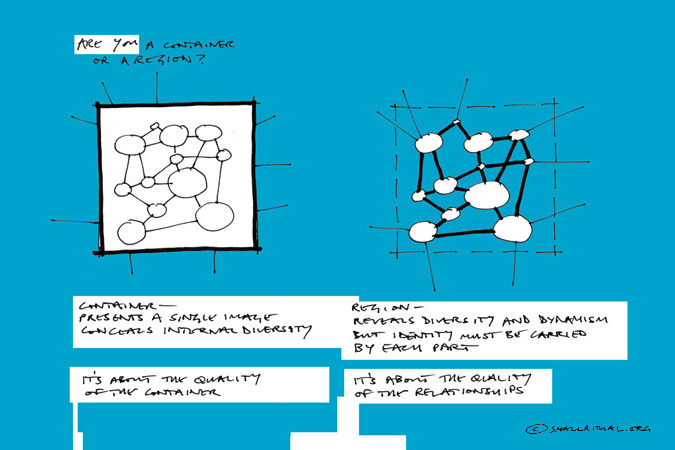 ARE YOU A CONTAINER
OR A REGION?
CONTAINER —
PRESENTS A SINGLE IMAGE
CONCEALS INTERNAL DIVERSITY
IT'S ABOUT THE QUALITY
OF THE CONTAINER
REGION —
REVEALS DIVERSITY AND DYNAMISM
BUT IDENTITY MUST BE CARRIED
BY EACH PART
IT'S ABOUT THE QUALITY
OF THE RELATIONSHIPS
© SMALLRITUAL.ORG